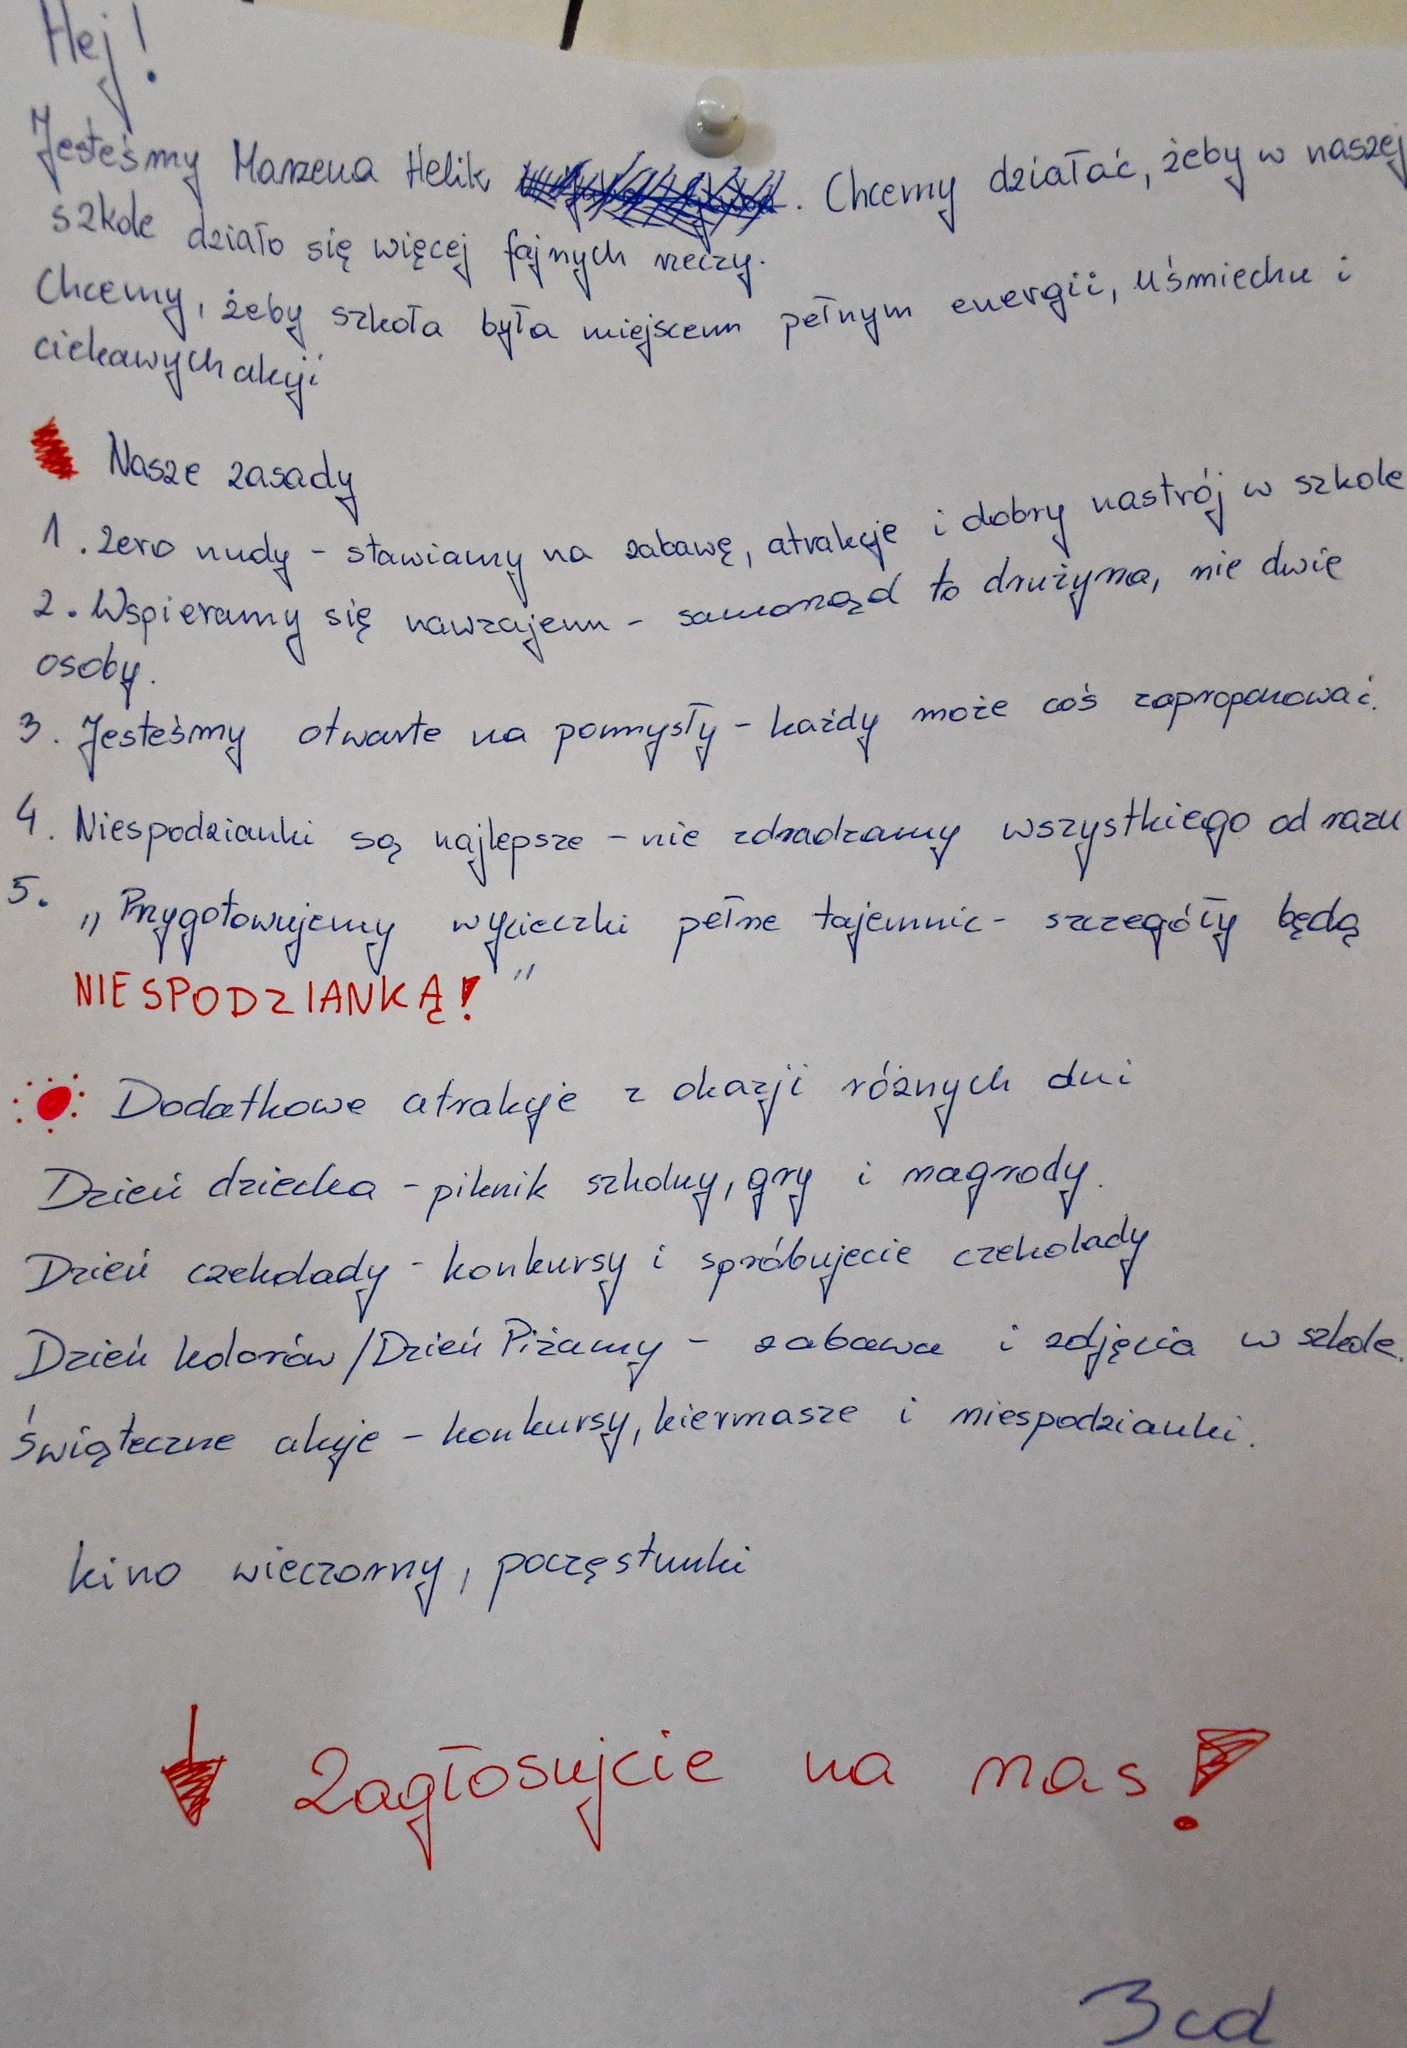 Hej!
Jesteśmy Marzena Helik . Chcemy działać, żeby w naszej
szkole działo się więcej fajnych rzeczy.
Chcemy, żeby szkoła była miejscem pełnym energii, uśmiechu i
ciekawych akcji
Nasze zasady
1. Zero nudy - stawiamy na zabawę, atrakcje i dobry nastrój w szkole
2. Wspieramy się nawzajem - samorząd to drużyna, nie dwie
osoby.
3. Jesteśmy otwarte na pomysły - każdy może coś zaproponować.
4. Niespodzianki są najlepsze - nie zdradzamy wszystkiego od razu
5. „Przygotowujemy wycieczki pełne tajemnic - szczegóły będą
NIESPODZIANKĄ! ”
Dodatkowe atrakcje z okazji różnych dni
Dzień dziecka - piknik szkolny, gry i nagrody.
Dzień czekolady - konkursy i spróbujecie czekolady
Dzień kolorów / Dzień Piżamy - zabawa i zdjęcia w szkole.
Świąteczne akcje - konkursy, kiermasze i niespodzianki.
kino wieczorny, poczęstunki
Zagłosujcie na nas!
3cd